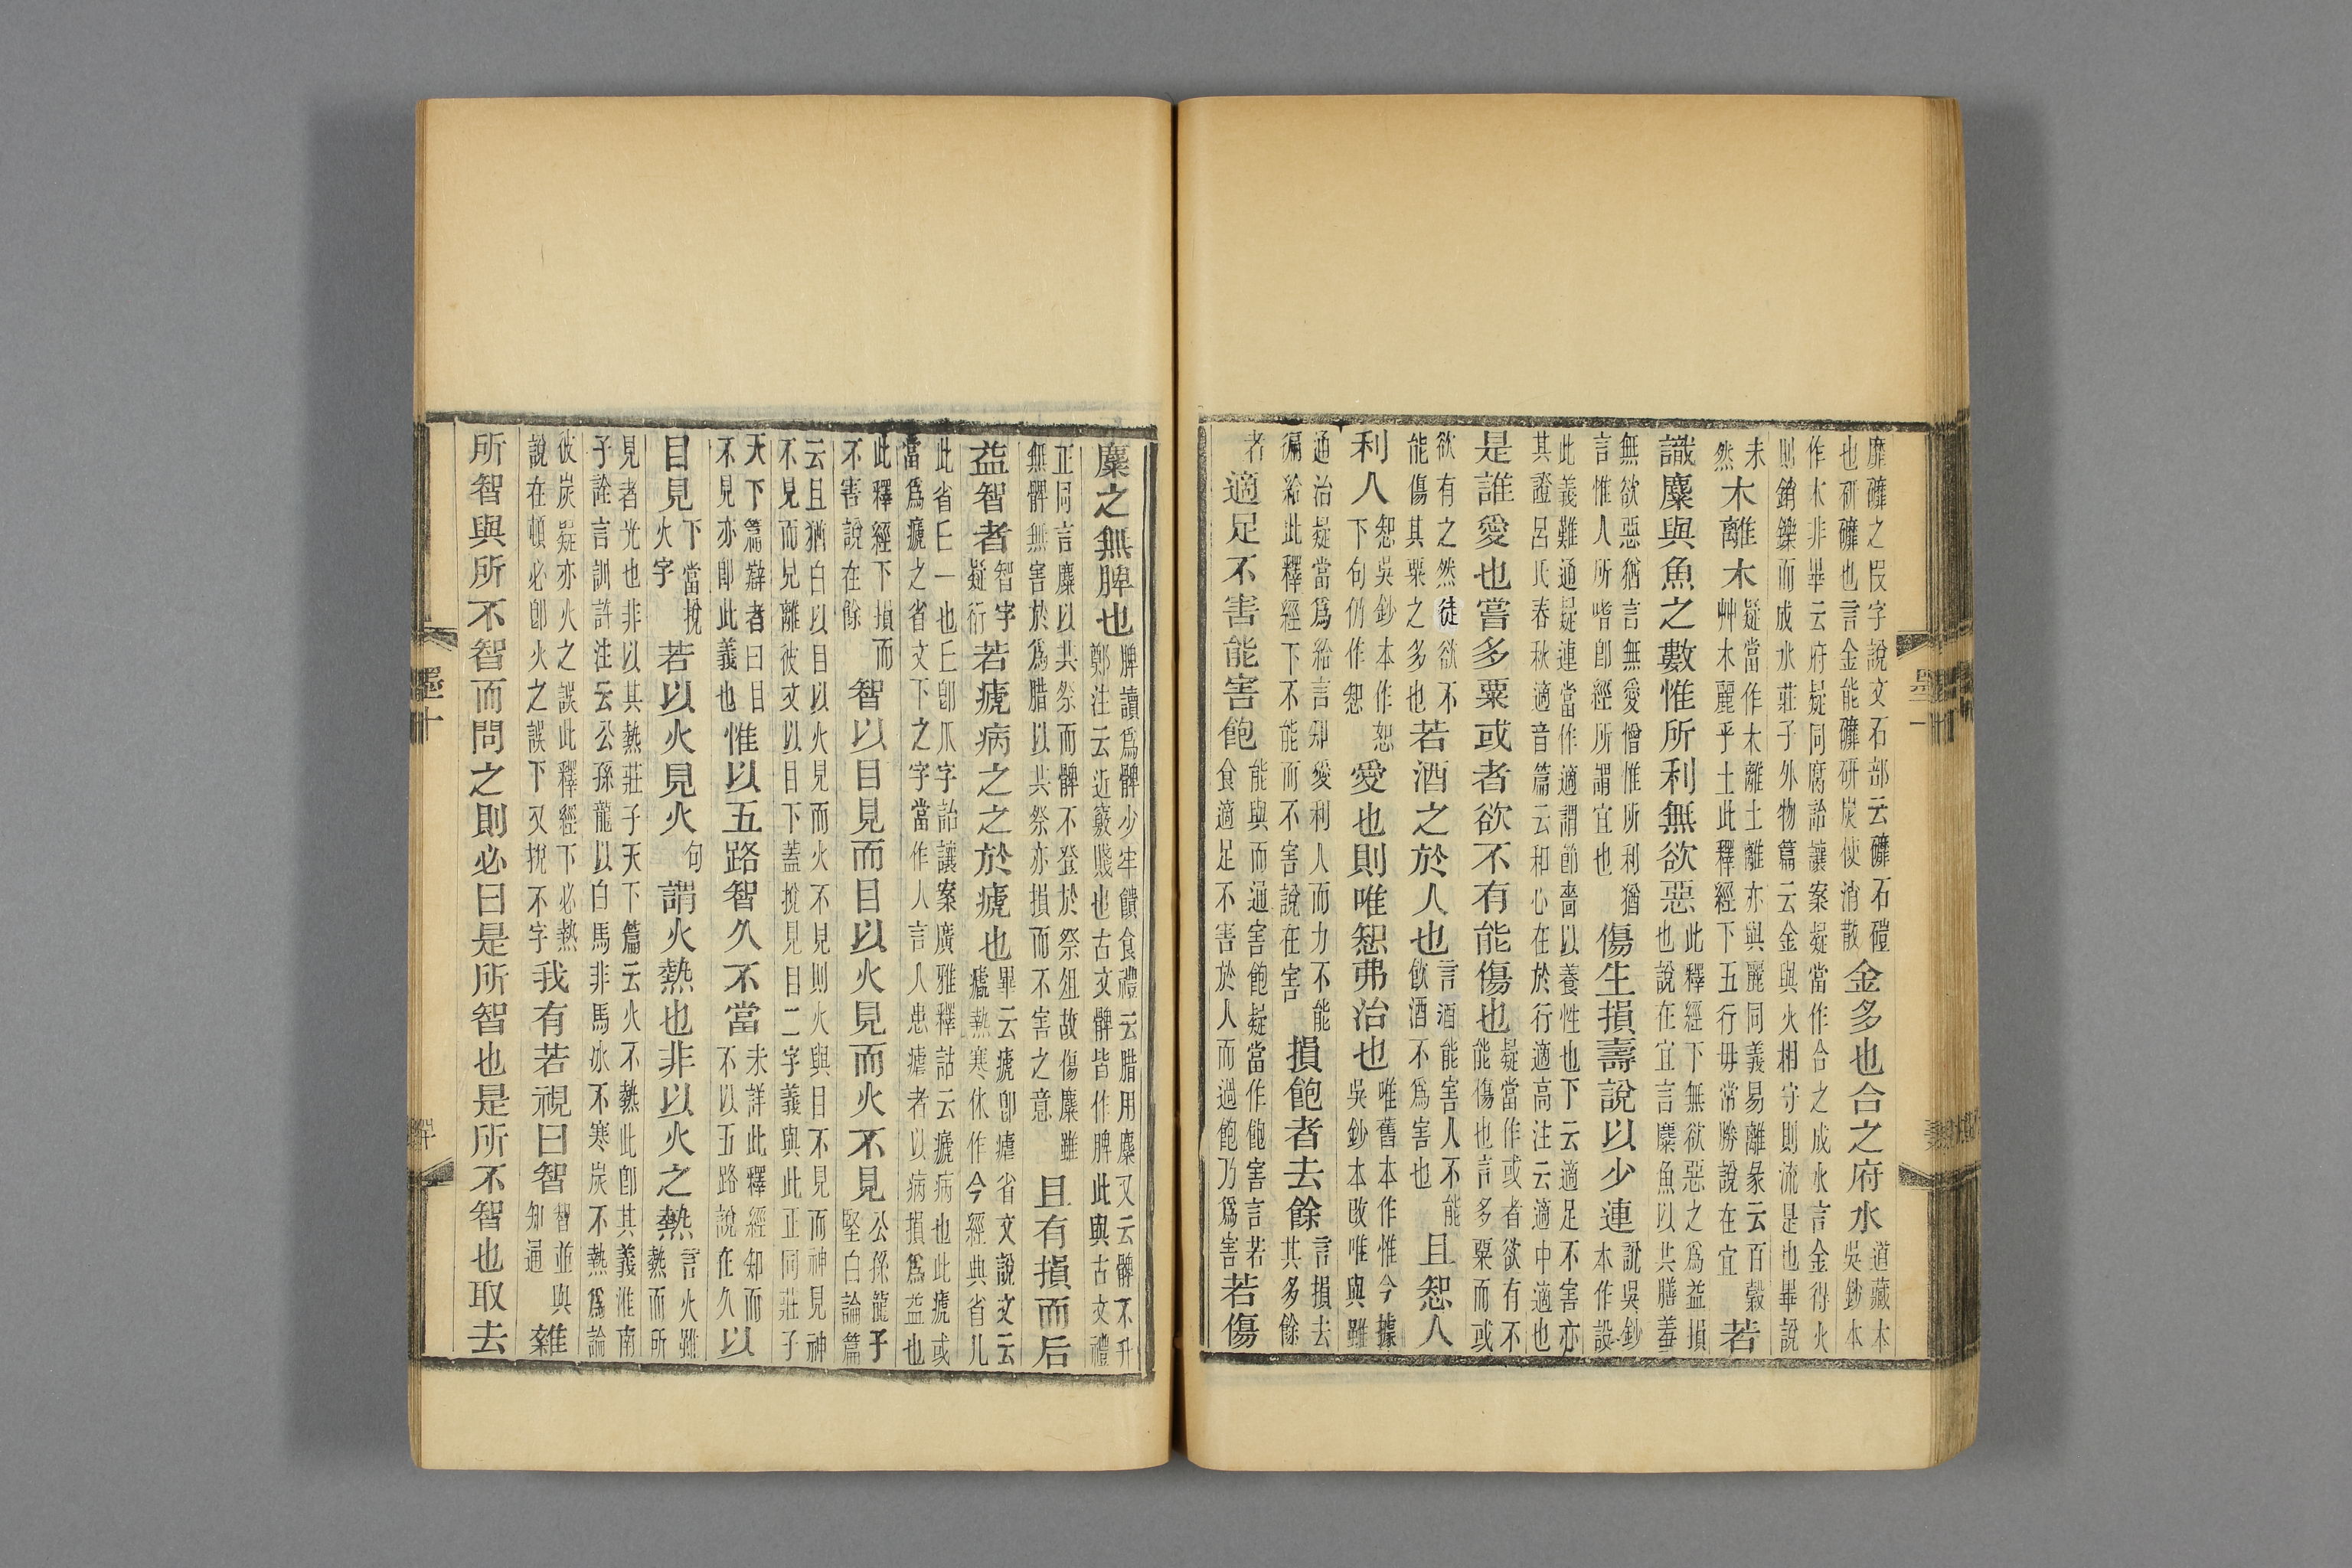 靡䃺之叚字說文石部云䃺石磑也研䃺也言金能䃺研炭使消散金多也合之府水道藏本吳鈔本
作木非畢云府疑同腐詒讓案疑當作合之成水言金得火則銷鑠而成水莊子外物篇云金與火相守則流是也畢說
未然木離木疑當作木離土離亦與麗同義易離彖云百穀艸木麗乎土此釋經下五行毋常勝說在宜若
識麋與魚之數惟所利無欲惡此釋經下無欲惡之爲益損也說在宜言麋魚以共膳羞
無欲惡猶言無愛憎惟所利猶言惟人所嗜卽經所謂宜也傷生損壽說以少連說吳鈔本作設
此義難通疑連當作適謂節嗇以養性也下云適足不害亦其證呂氏春秋適音篇云和心在於行適高注云適中適也
是誰愛也嘗多粟或者欲不有能傷也疑當作或者欲有不能傷也言多粟而或
欲有之然徒欲不能傷其粟之多也若酒之於人也言酒能害人不能飲酒不爲害也且恕人
利人恕吳鈔本作恕下句仍作恕愛也則唯恕弗治也唯舊本作惟今據吳鈔本改唯與雖
通治疑當爲給言知愛利人而力不能徧給此釋經下不能而不害說在害損飽者去餘言損去其多餘
者適足不害能害飽能與而通害飽疑當作飽害言若食適足不害於人而過飽乃爲害若傷
麋之無脾也脾讀爲髀少牢饋食禮云腊用麋又云髀不升鄭注云近竅賤也古文髀皆作脾此與古文禮
正同言麋以共祭而髀不登於祭俎故傷麋雖無髀無害於爲腊以共祭亦損而不害之意且有損而后
益智者智字疑衍若瘧病之之於瘧也畢云瘧卽瘧省文說文云瘧熱寒休作今經典省几
此省𠂇一也𠂇卽爪字詒讓案廣雅釋詁云瘧病也此瘧或當爲瘧之省文下之字當作人言人患瘧者以病損爲益也
此釋經下損而不害說在餘智以目見而目以火見而火不見公孫龍子堅白論篇
云且猶白以目以火見而火不見則火與目不見而神見神不見而見離彼文以目下蓋挩見目二字義與此正同莊子
天下篇辯者曰目不見亦卽此義也惟以五路智久不當未詳此釋經知而不以五路說在久以
目見下當挩火字若以火見火句謂火熱也非以火之熱言火雖熱而所
見者光也非以其熱莊子天下篇云火不熱此卽其義淮南子詮言訓許注云公孫龍以白馬非馬冰不寒炭不熱爲論
彼炭疑亦火之誤此釋經下必熱說在頓必卽火之誤下又挩不字我有若視曰智智並與知通雜
所智與所不智而問之則必曰是所智也是所不智也取去
墨十